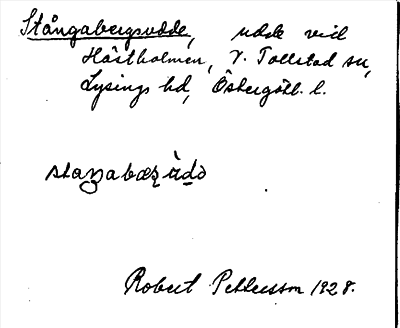 Stångabergsudde, udde vid
Hästholmen, V. Tollstad sn,
Lysings hd, Östergötl. l.
staŋabæʀ ùdə
Robert Pettersson 1928.